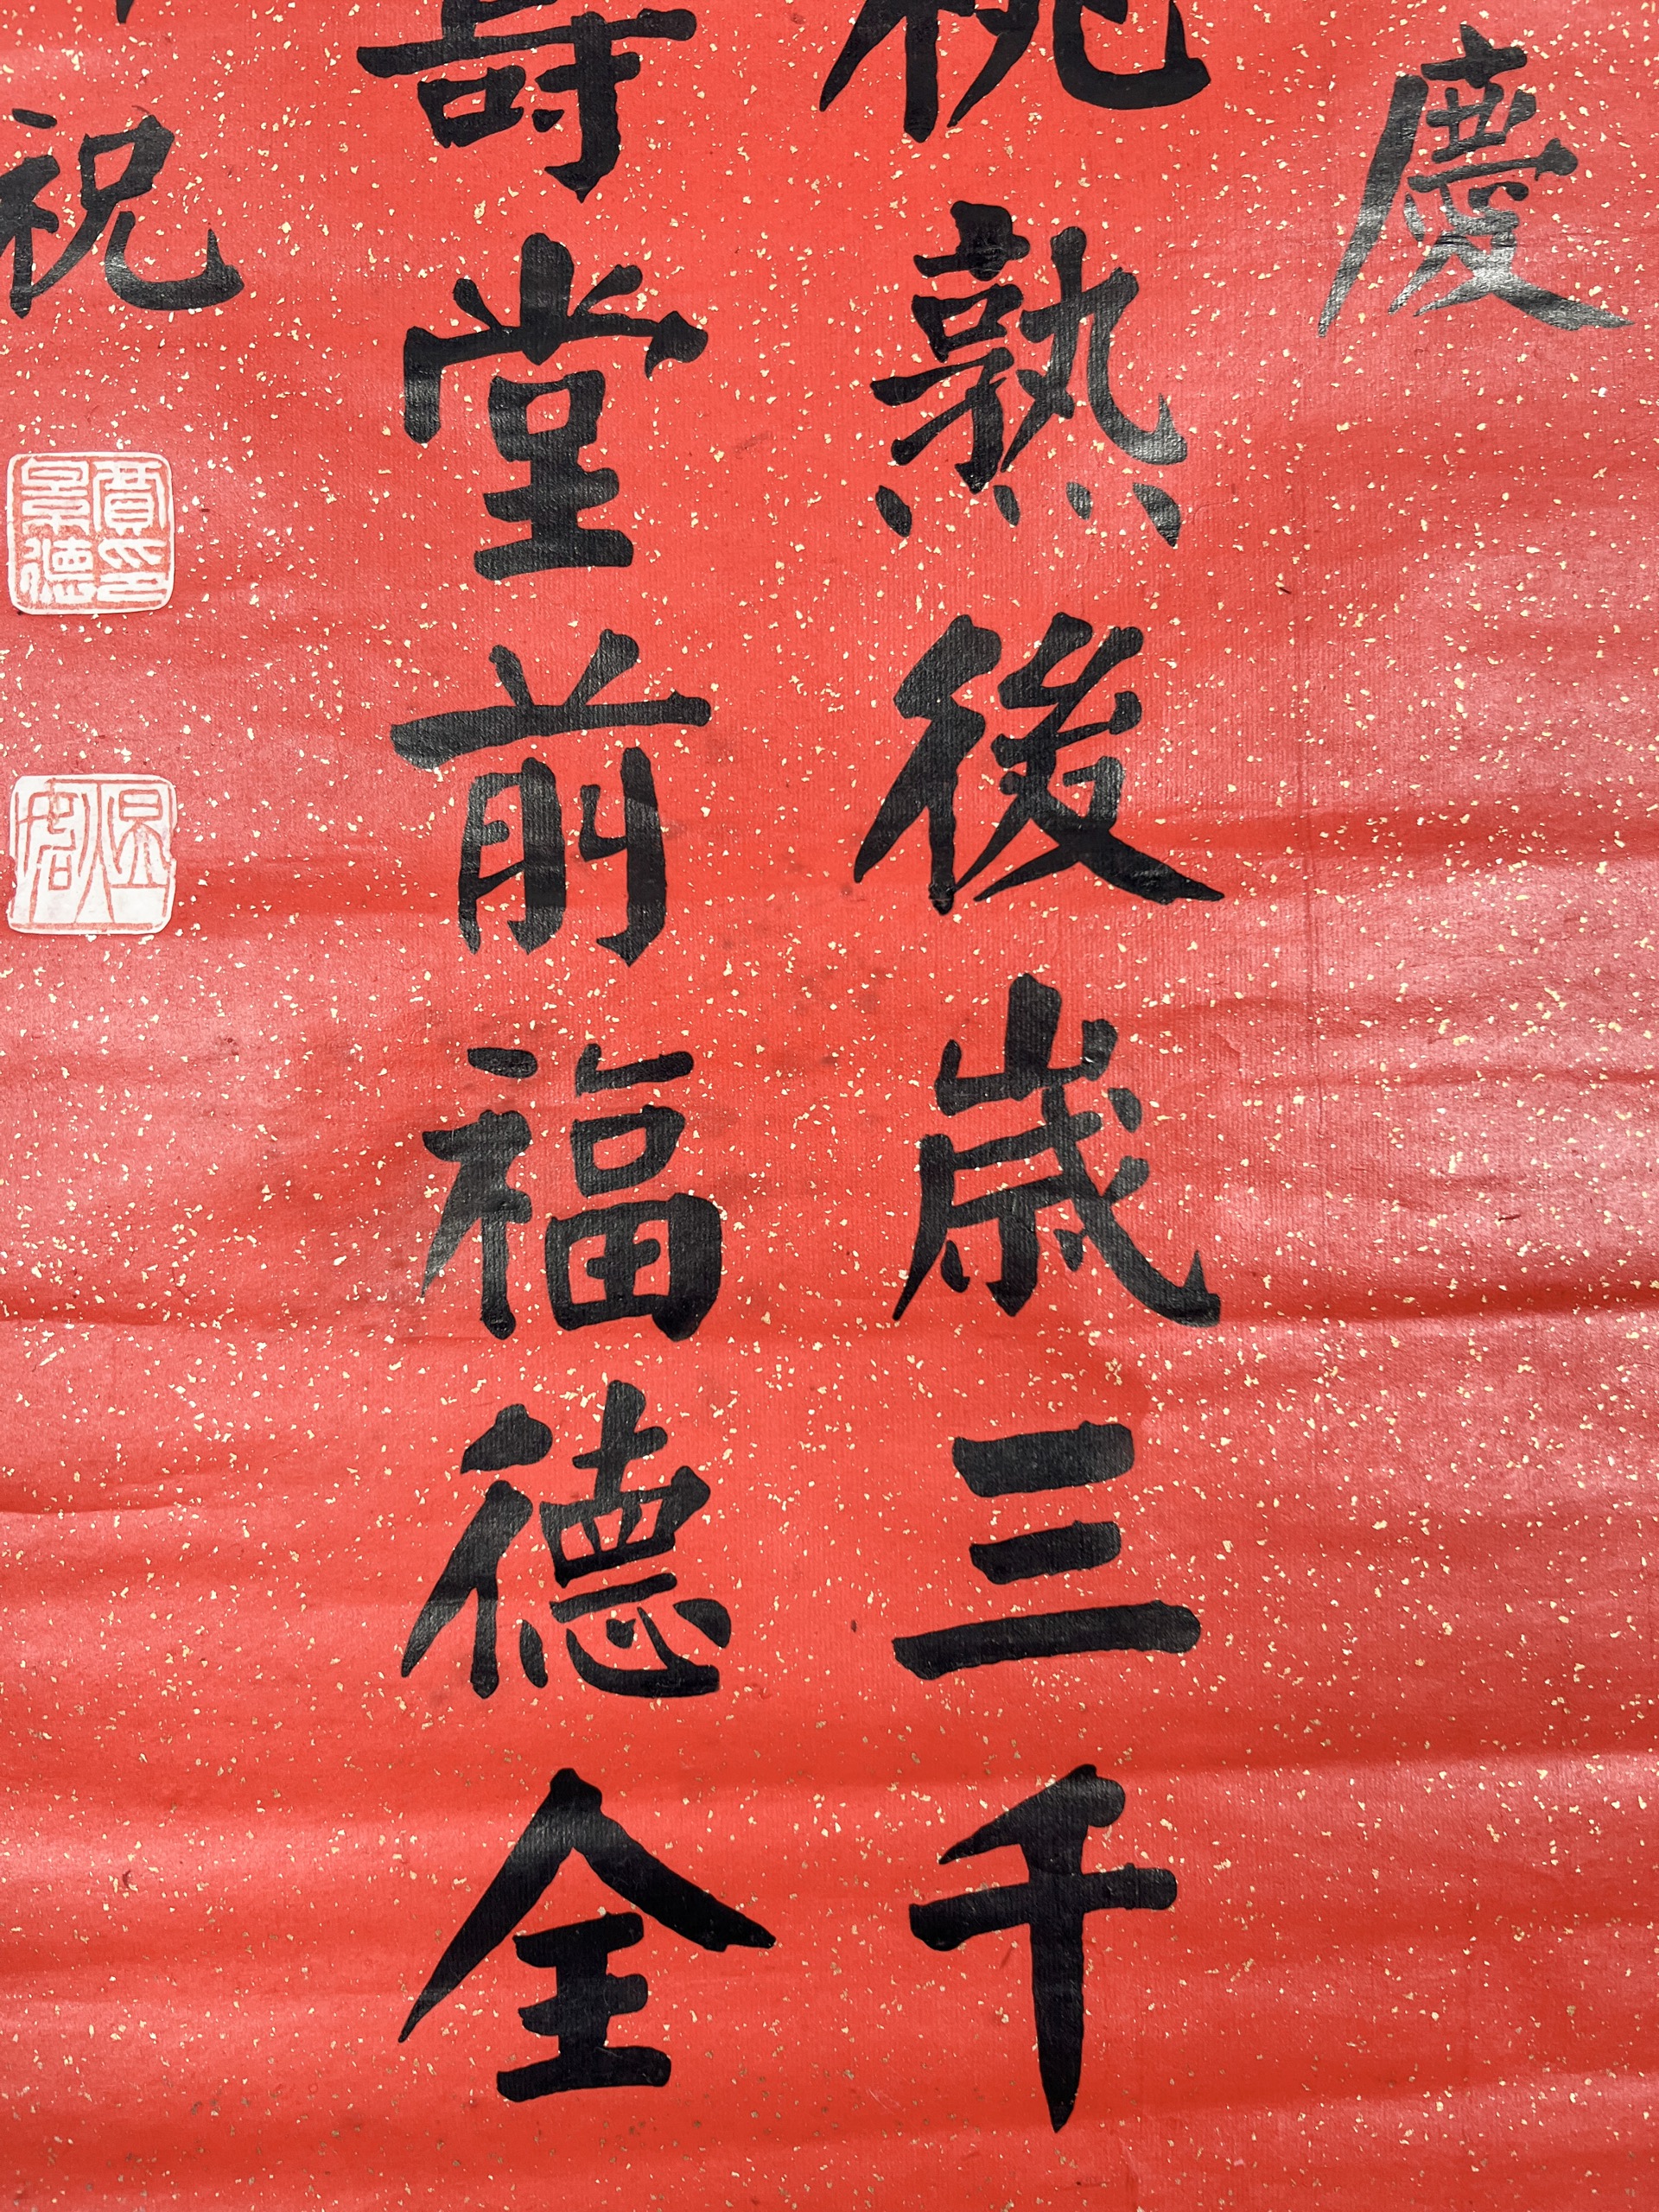 慶
桃熟後歲三千
壽堂前福德全
祝
賈景德印
煜如